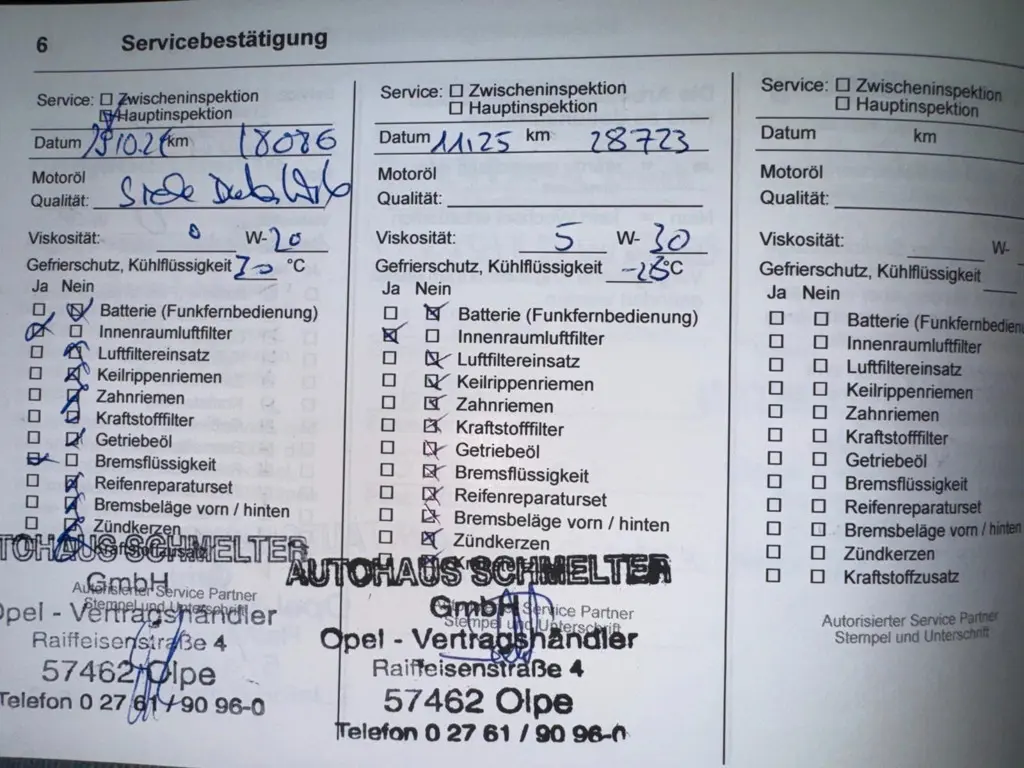 6 Servicebestätigung
Service: Zwischeninspektion
Hauptinspektion
Datum km 18086
Motoröl
Qualität:
Viskosität: 0 W-20
Gefrierschutz, Kühlflüssigkeit °C
Ja Nein
Batterie (Funkfernbedienung)
Innenraumluftfilter
Luftfiltereinsatz
Keilrippenriemen
Zahnriemen
Kraftstofffilter
Getriebeöl
Bremsflüssigkeit
Reifenreparaturset
Bremsbeläge vorn / hinten
Zündkerzen
Kraftstoffzusatz
TOHAUS SCHMELTER
GmbH
Autorisierter Service Partner
Stempel und Unterschrift
Opel - Vertragshändler
Raiffeisenstraße 4
57462 Olpe
Telefon 0 27 61 / 90 96-0
Service: Zwischeninspektion
Hauptinspektion
Datum 11.25 km 28723
Motoröl
Qualität:
Viskosität: 5 W-30
Gefrierschutz, Kühlflüssigkeit -28°C
Ja Nein
Batterie (Funkfernbedienung)
Innenraumluftfilter
Luftfiltereinsatz
Keilrippenriemen
Zahnriemen
Kraftstofffilter
Getriebeöl
Bremsflüssigkeit
Reifenreparaturset
Bremsbeläge vorn / hinten
Zündkerzen
AUTOHAUS SCHMELTER
GmbH
Service Partner
Stempel und Unterschrift
Opel - Vertragshändler
Raiffeisenstraße 4
57462 Olpe
Telefon 0 27 61 / 90 96-0
Service: Zwischeninspektion
Hauptinspektion
Datum km
Motoröl
Qualität:
Viskosität: W-
Gefrierschutz, Kühlflüssigkeit
Ja Nein
Batterie (Funkfernbedienu
Innenraumluftfilter
Luftfiltereinsatz
Keilrippenriemen
Zahnriemen
Kraftstofffilter
Getriebeöl
Bremsflüssigkeit
Reifenreparaturset
Bremsbeläge vorn / hinten
Zündkerzen
Kraftstoffzusatz
Autorisierter Service Partner
Stempel und Unterschrift